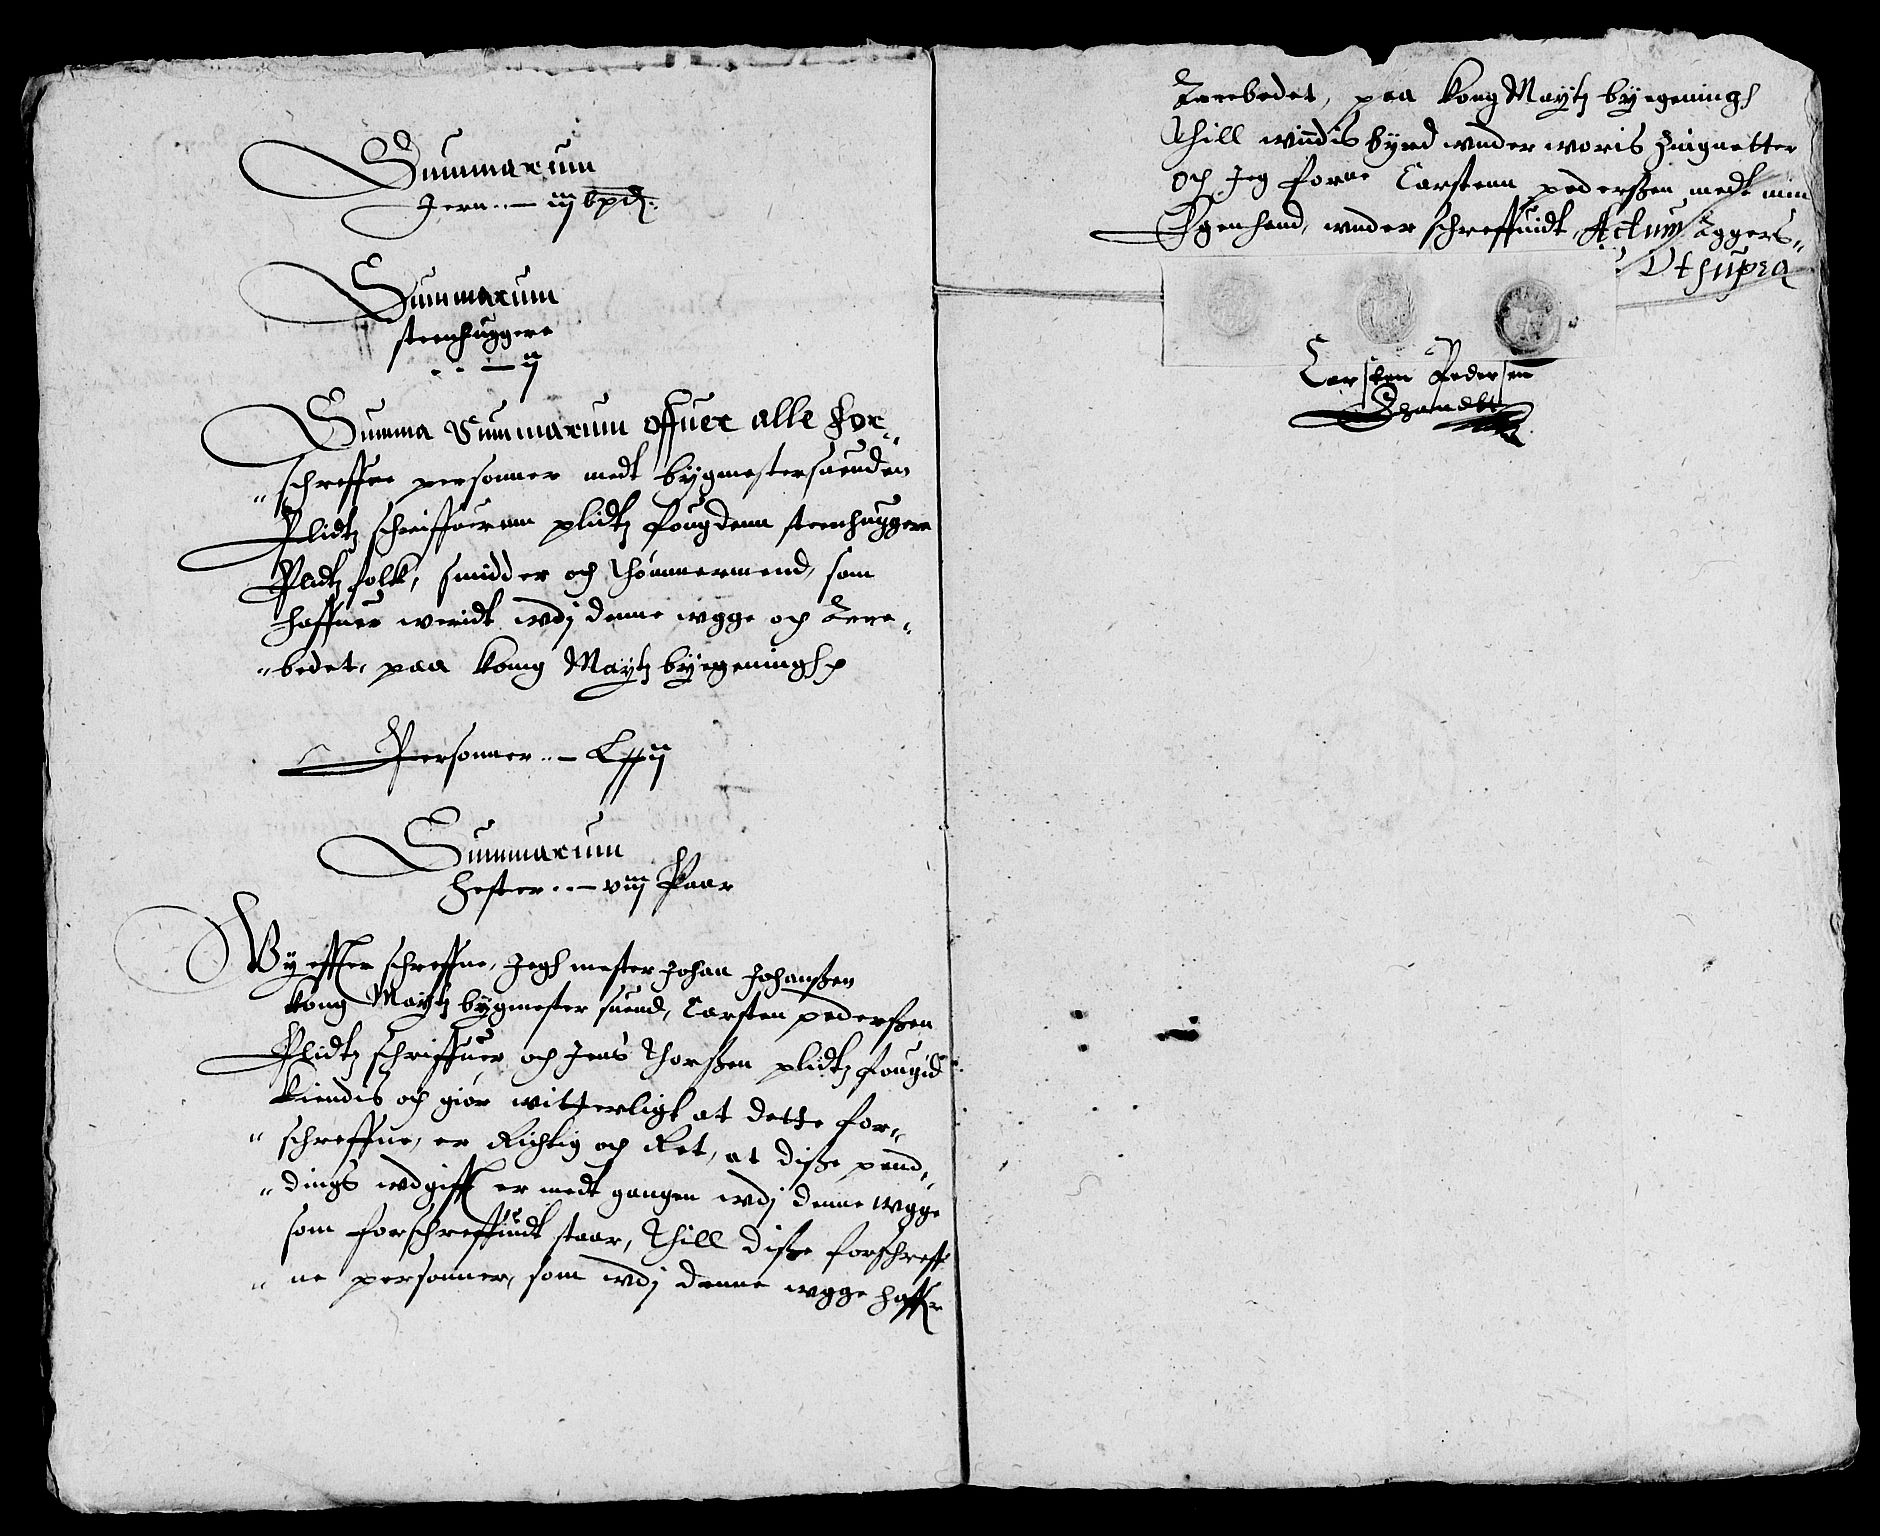 Summarum
Jern .. — iij bpd.
Summarum
steenhuggere
. . — ij
Summa Summarum offuer alle for„
„ schreffne personner medt bygmestersuenden
Plidtz schriffuerenn plidtz fougdenn steenhuggere
Plidtz folk, smidder och thømmermend, som
haffuer weridt wdj denne wgge och Arre„
„ bedet, paa kong Maytz byegeningh
Personner .. — Lxxij
Summarum
Hester . . — viij Paar
Wy effter schreffne, Jegh mester Johan Johanßen
kong Maytz bygmester suend, Carsten pederßen
Plidtz schriffuer och Jens Thorßen plidtz fougid
kiendis och giør witterligt at dette for„
„ schreffne, er Richtig och Ret, at diße pend„
„ dings wdgifft er medt gangen wdj denne wgge
som forschreffuidt staar, Thill diße forschreff
„ ne personner, som wdj denne wgge haffr
Arrebedet, paa kong Maytz byegeningh
Thill windis byrd wnder woris Zingnetter
och Jeg forne Carstenn pederßen medt min
Egen hand, wnder schreffuidt, Actum Aggers„
Vt supra
Carsten Pedersen
Ehandt